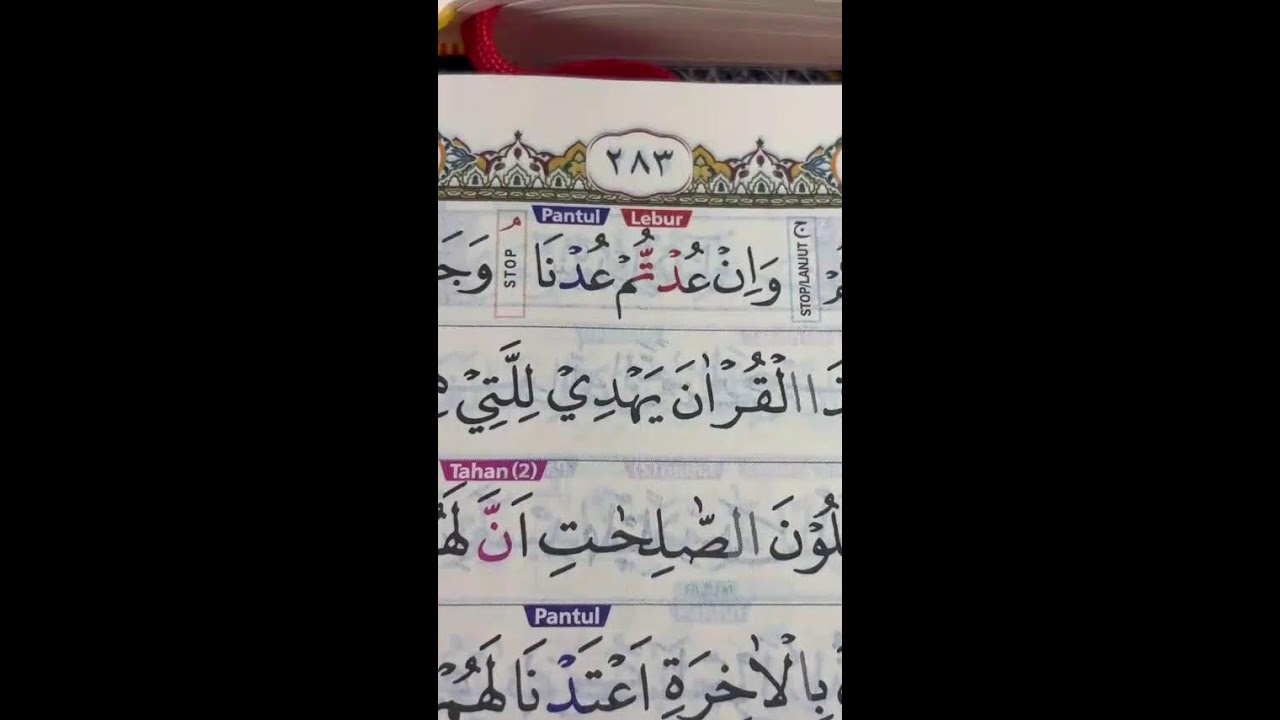 ٢٨٣
Pantul Lebur
وَاِنْ عُدْتُّمْ عُدْنَا ۘ وَجَ
STOP/LANJUT ۚ
STOP م
ذَا الْقُرْاٰنَ يَهْدِيْ لِلَّتِيْ هِ
Tahan (2)
لُوْنَ الصّٰلِحٰتِ اَنَّ لَهُ
Pantul
بِالْاٰخِرَةِ اَعْتَدْنَا لَهُمْ